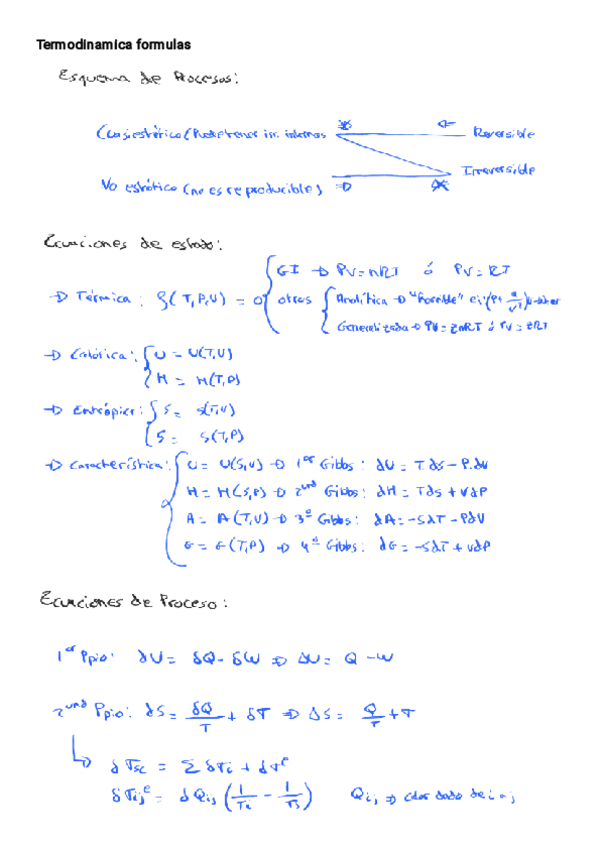 Termodinamica formulas
Esquema de Procesos:
Cuasiestático (Puede tener irr. internas → ← Reversible
Irreversible
No estático (no es reproducible) ⇒
Ecuaciones de estado:
GI → PV=nRT ó PV=RT
→ Térmica: f(T,P,V) = 0 otros Analítica → "Posible" ej:(P+ a/V²)
Generalizada → PV=ZnRT ó PV=ZRT
→ Calórica: U = U(T,V)
H = H(T,P)
→ Entrópica: S = S(T,V)
S = S(T,P)
→ Característica: U = U(S,V) → 1er Gibbs: dU = T.dS - P.dV
H = H(S,P) → 2und Gibbs: dH = TdS + VdP
A = A(T,V) → 3ª Gibbs: dA = -SdT - PdV
G = G(T,P) → 4ª Gibbs: dG = -SdT + VdP
Ecuaciones de Proceso:
1er Ppio: dU = δQ - δW ⇒ ΔU = Q - W
2und Ppio: dS = δQ/T + δσ ⇒ ΔS = Q/T + σ
↳ dσsc = Σ δσi + dσe
δσije = dQij (1/Ti - 1/Tj) Qij ⇒ calor dado de i a j